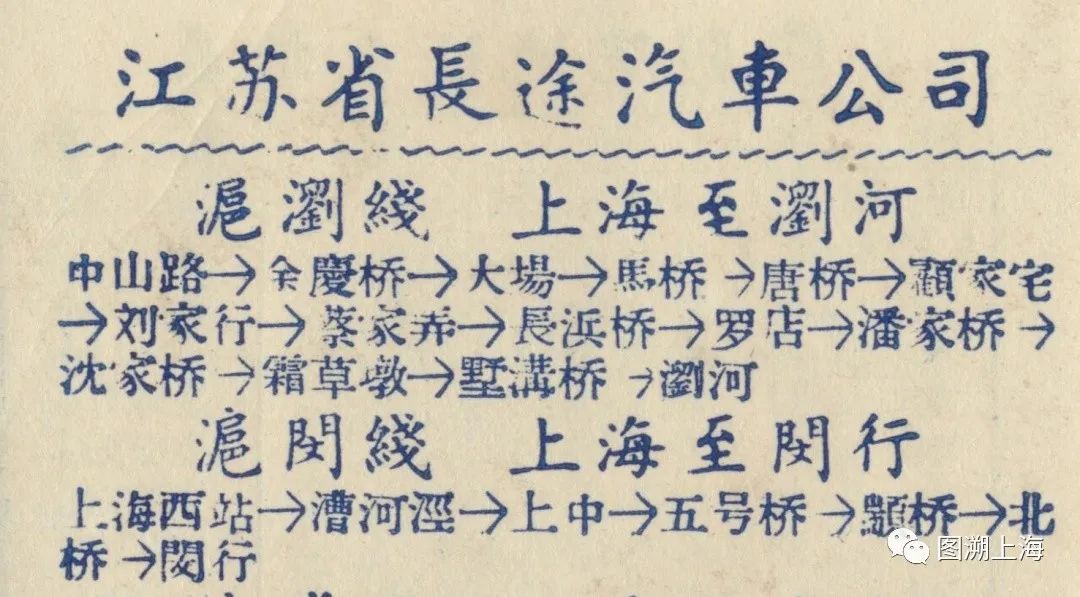 江苏省長途汽車公司
滬瀏綫 上海至瀏河
中山路→余慶桥→大場→馬桥→唐桥→顧家宅
→刘家行→蔡家弄→長浜桥→罗店→潘家桥→
沈家桥→霜草墩→墅溝桥→瀏河
滬閔綫 上海至閔行
上海西站→漕河涇→上中→五号桥→顓桥→北
桥→閔行
图溯上海